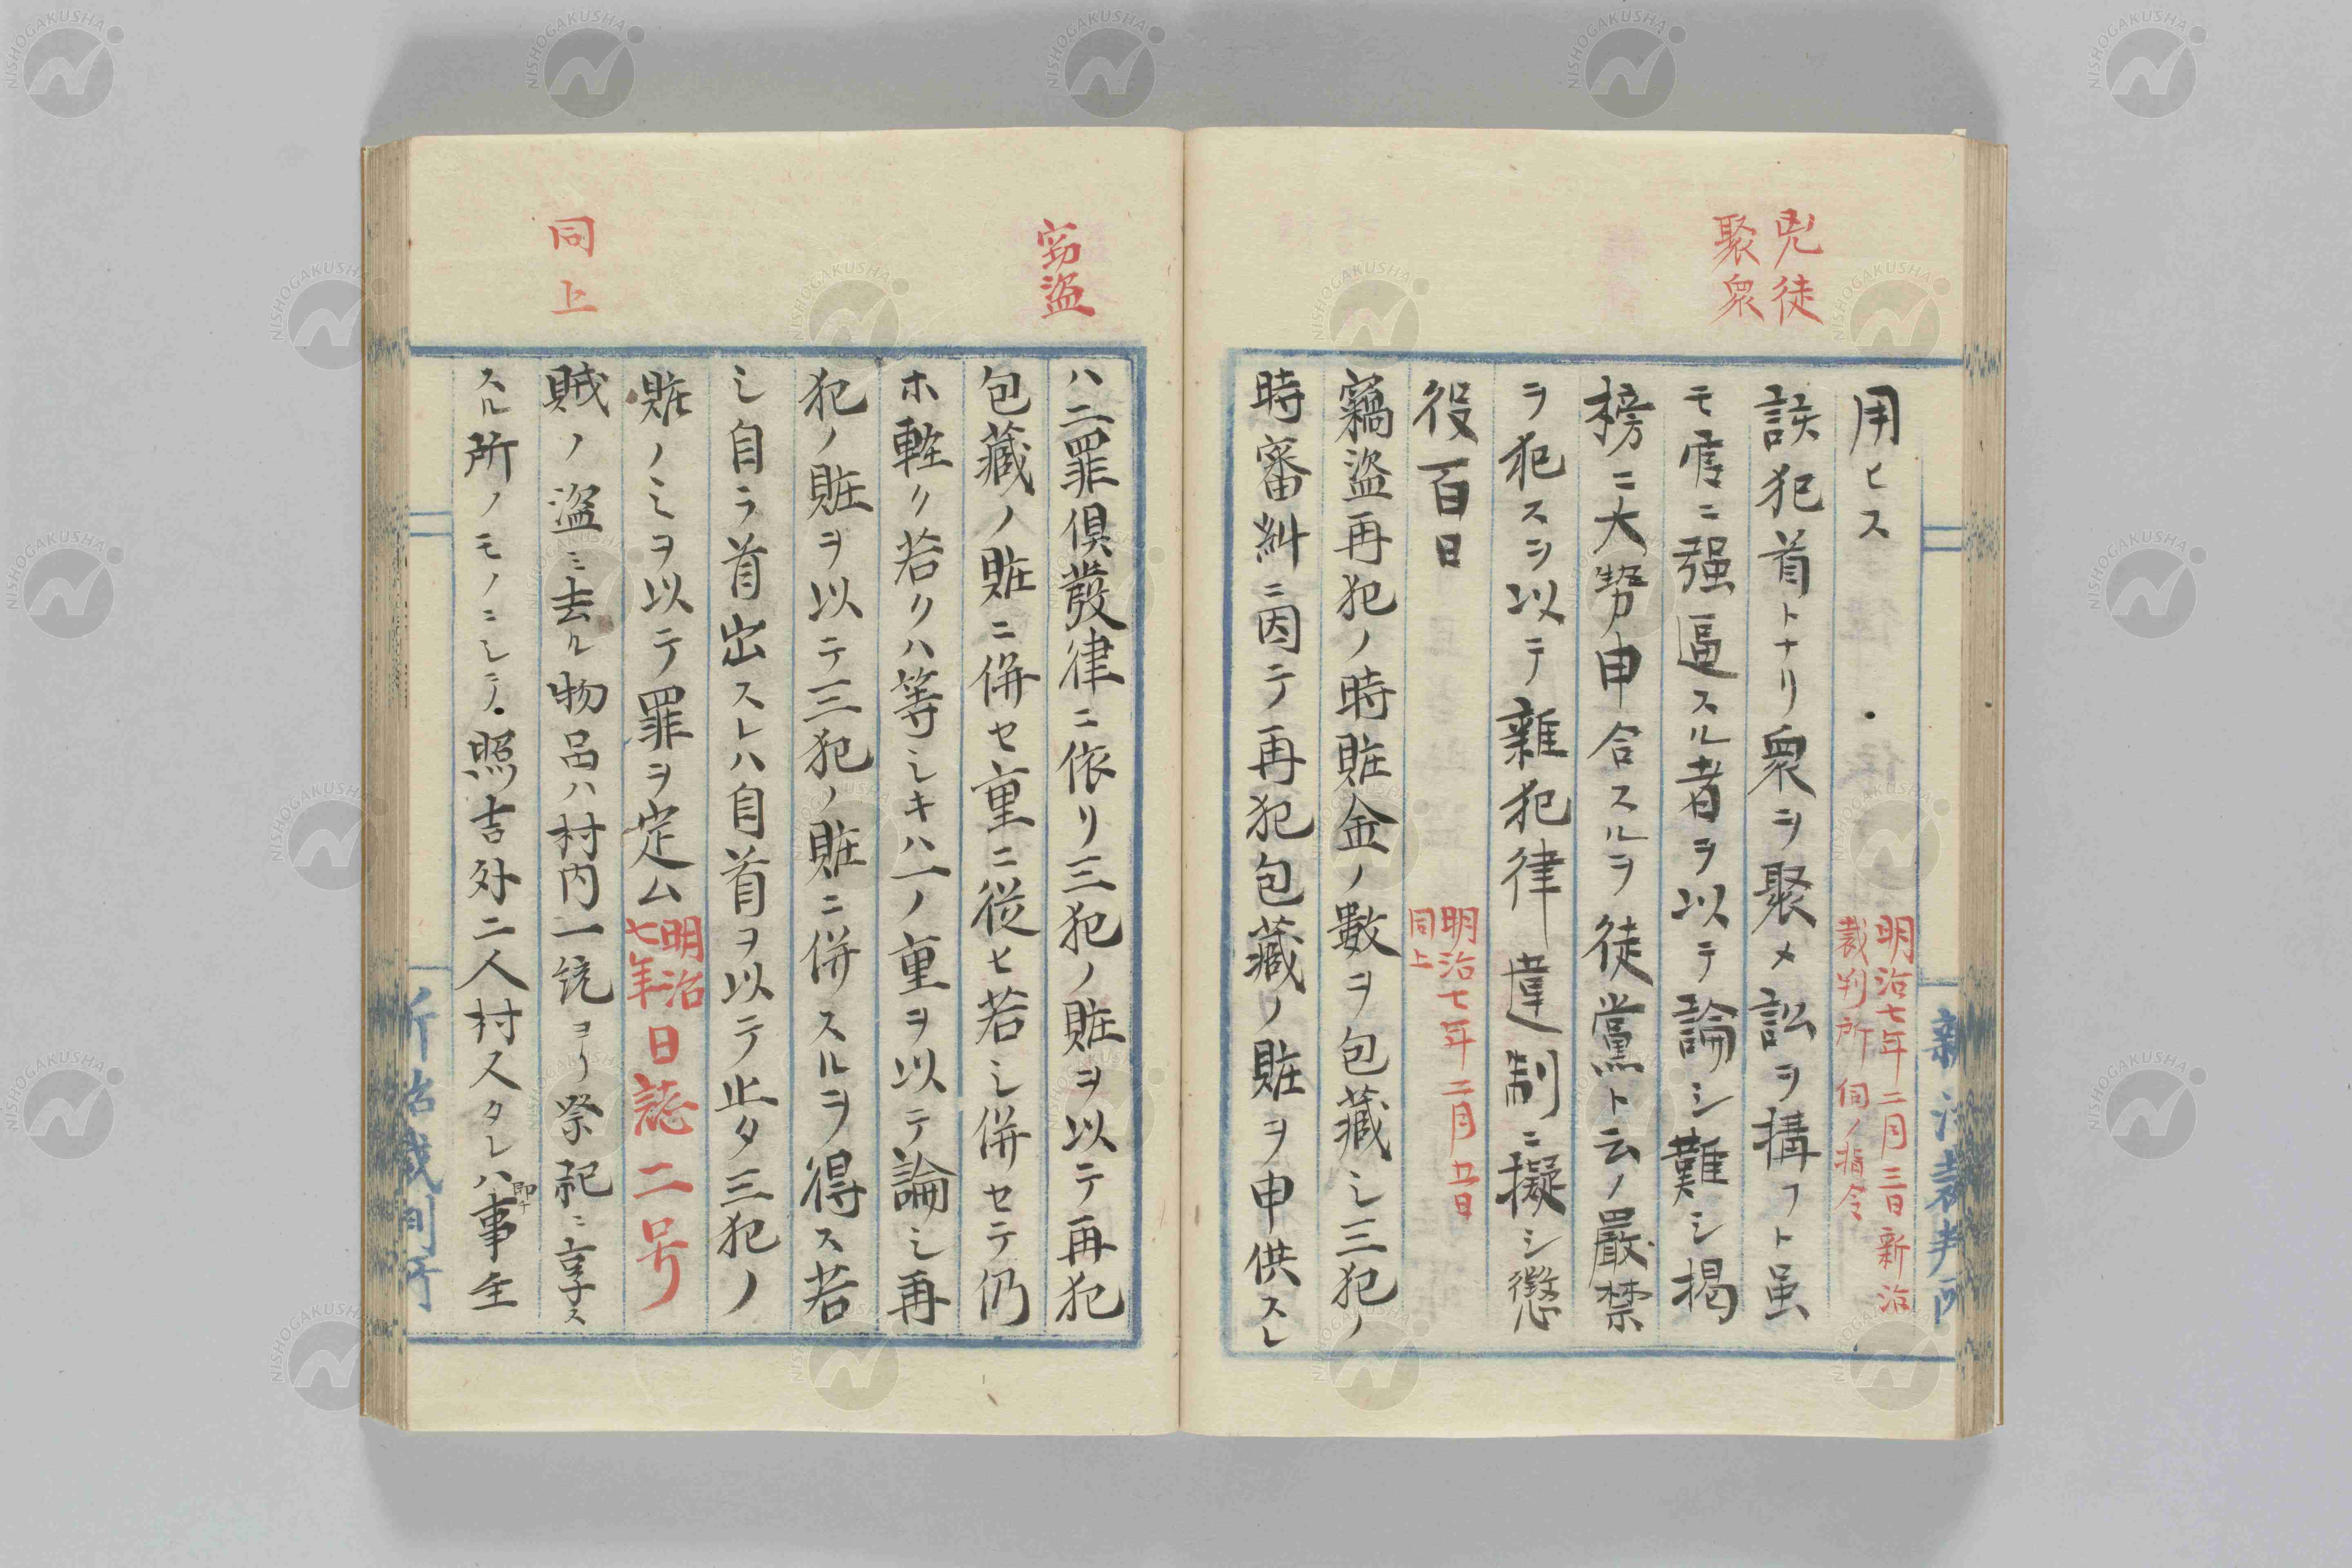 兇徒
聚衆
用ヒス
明治七年二月三日新治
裁判所伺ノ指令
該犯首トナリ衆ヲ聚メ訟ヲ搆フト虽
モ虐ニ强逼スル者ヲ以テ論シ難シ掲
榜ニ大勢申合スルヲ徒黨ト云ノ嚴禁
ヲ犯スヲ以テ雜犯律違制ニ擬シ懲
役百日
明治七年二月廿日
同上
竊盗再犯ノ時賍金ノ數ヲ包藏シ三犯ノ
時審糾ニ因テ再犯包藏ノ賍ヲ申供スレ
新治裁判所
窃盗
ハ二罪倶發律ニ依リ三犯ノ賍ヲ以テ再犯
包藏ノ賍ニ併セ重ニ從ヒ若シ併セテ仍
ホ軽ク若クハ等シキハ一ノ重ヲ以テ論シ再
犯ノ賍ヲ以テ三犯ノ賍ニ併スルヲ得ス若
シ自ラ首出スレハ自首ヲ以テ止タ三犯ノ
賍ノミヲ以テ罪ヲ定ム明治七年日誌二号
同上
賊ノ盗ミ去ル物品ハ村内一統ヨリ祭祀ニ享ス
スル所ノモノニシテ照吉外二人村スタレハ即チ事主
新治裁判所
NISHOGAKUSHA